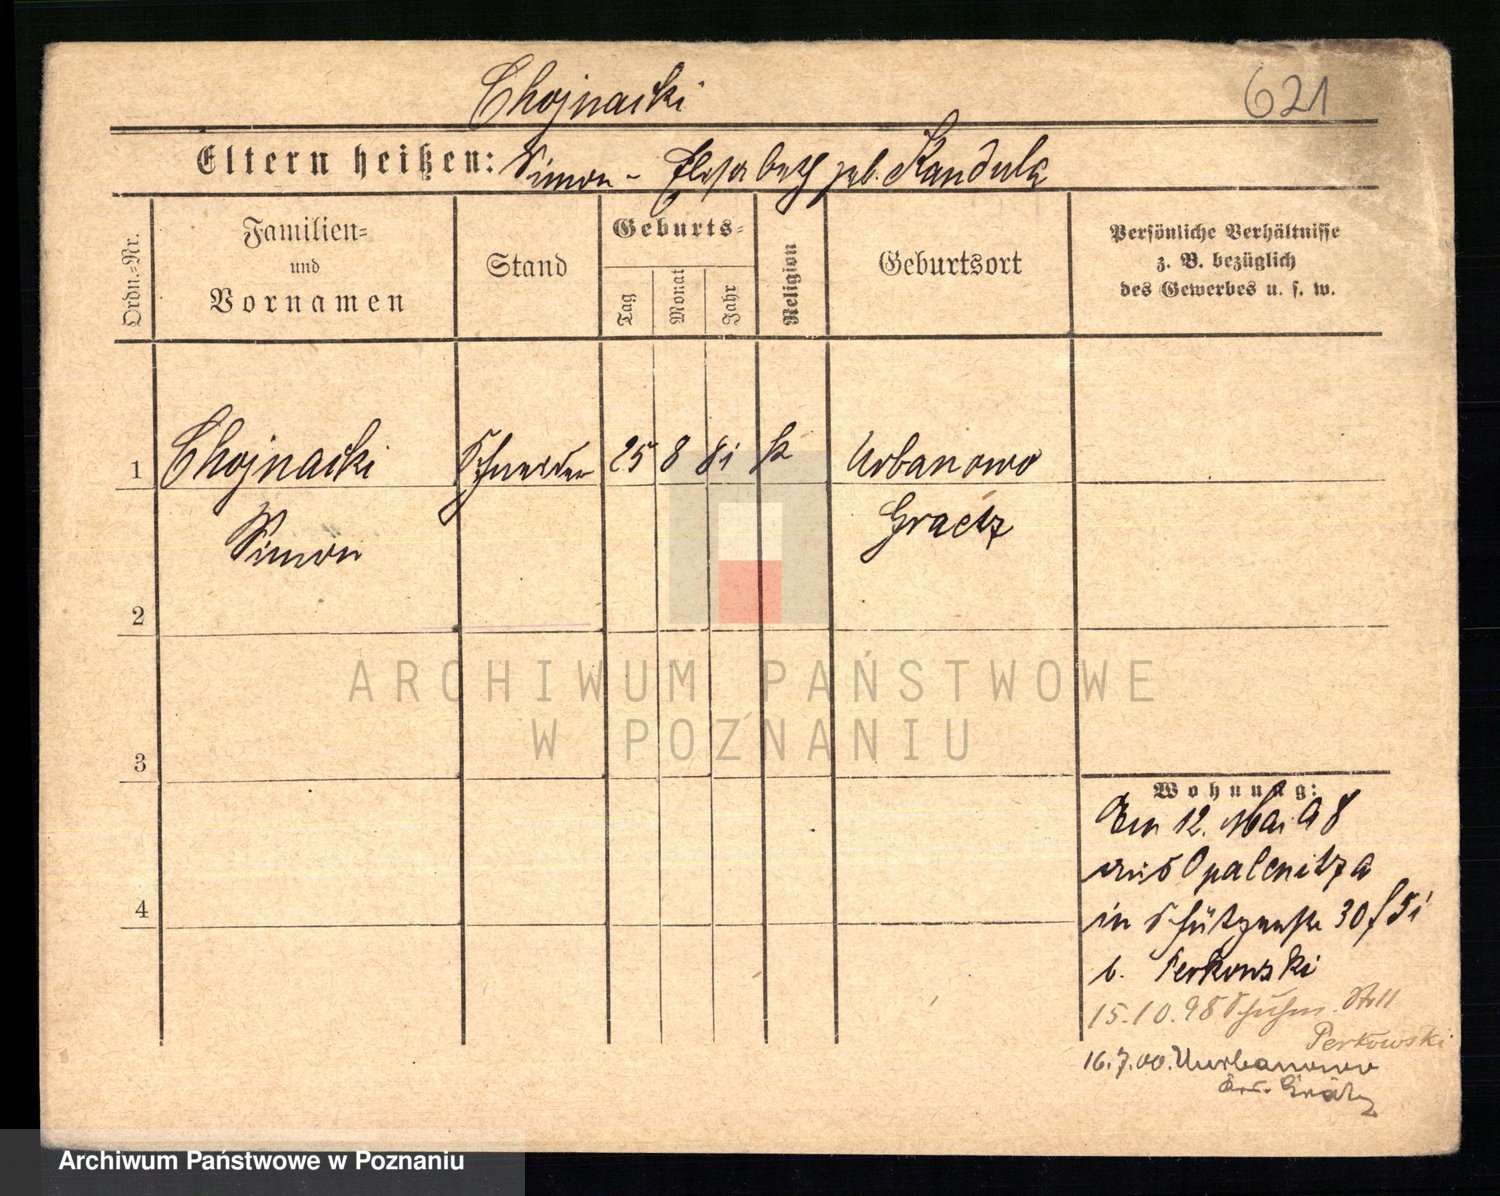 Chojnacki
621
Eltern heißen: Simon - Elisabeth geb. Kandula
Ordn.=Nr.
Familien=
und
Vornamen
Stand
Geburts=
Tag
Monat
Jahr
Religion
Geburtsort
Persönliche Verhältnisse
z. B. bezüglich
des Gewerbes u. s. w.
1 Chojnacki Schneider 25 8 81 k Urbanowo
Simon Graetz
2
3
4
Wohnung:
Am 12. Mai 98
aus Opalenitza
in Schützenstr 30
b. Perkowski
15.10.98
Perkowski
16.7.00. Urbanowo
Grätz
ARCHIWUM PAŃSTWOWE
W POZNANIU
Archiwum Państwowe w Poznaniu